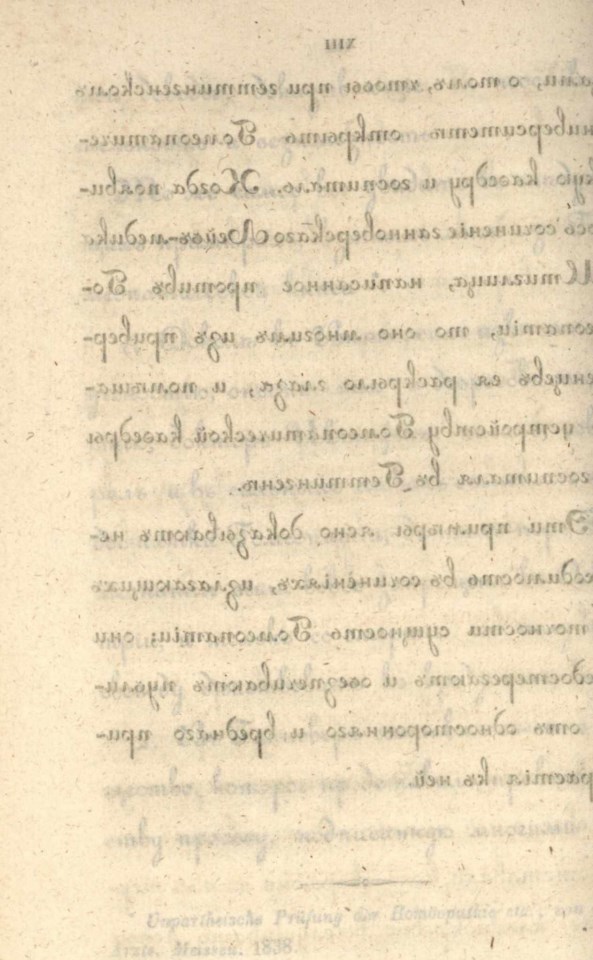 XIII
ами, о томъ, чтобы при геттингенскомъ
ниверситетѣ открыть Гомеопатиче-
кую каѳедру и госпиталь. Когда появи-
ось сочиненіе ганноверскаго Лейбъ-медика
Штиглица, написанное противъ Го-
еопатіи, то оно многимъ изъ привер-
енцевъ ея раскрыло глаза, и помѣша-
устройству Гомеопатической каѳедры
госпиталя въ Геттингенѣ.
Эти примѣры ясно доказываютъ не-
ходимость въ сочиненіяхъ, излагающихъ
точности сущность Гомеопатіи; они
едостерегаютъ и обезпечиваютъ публи-
отъ односторонняго и вреднаго при-
растія къ ней.
ству просьбу, подписанную многими
Unpartheiische Prüfung der Homöopathie etc., von
Arzte. Meissen. 1838.